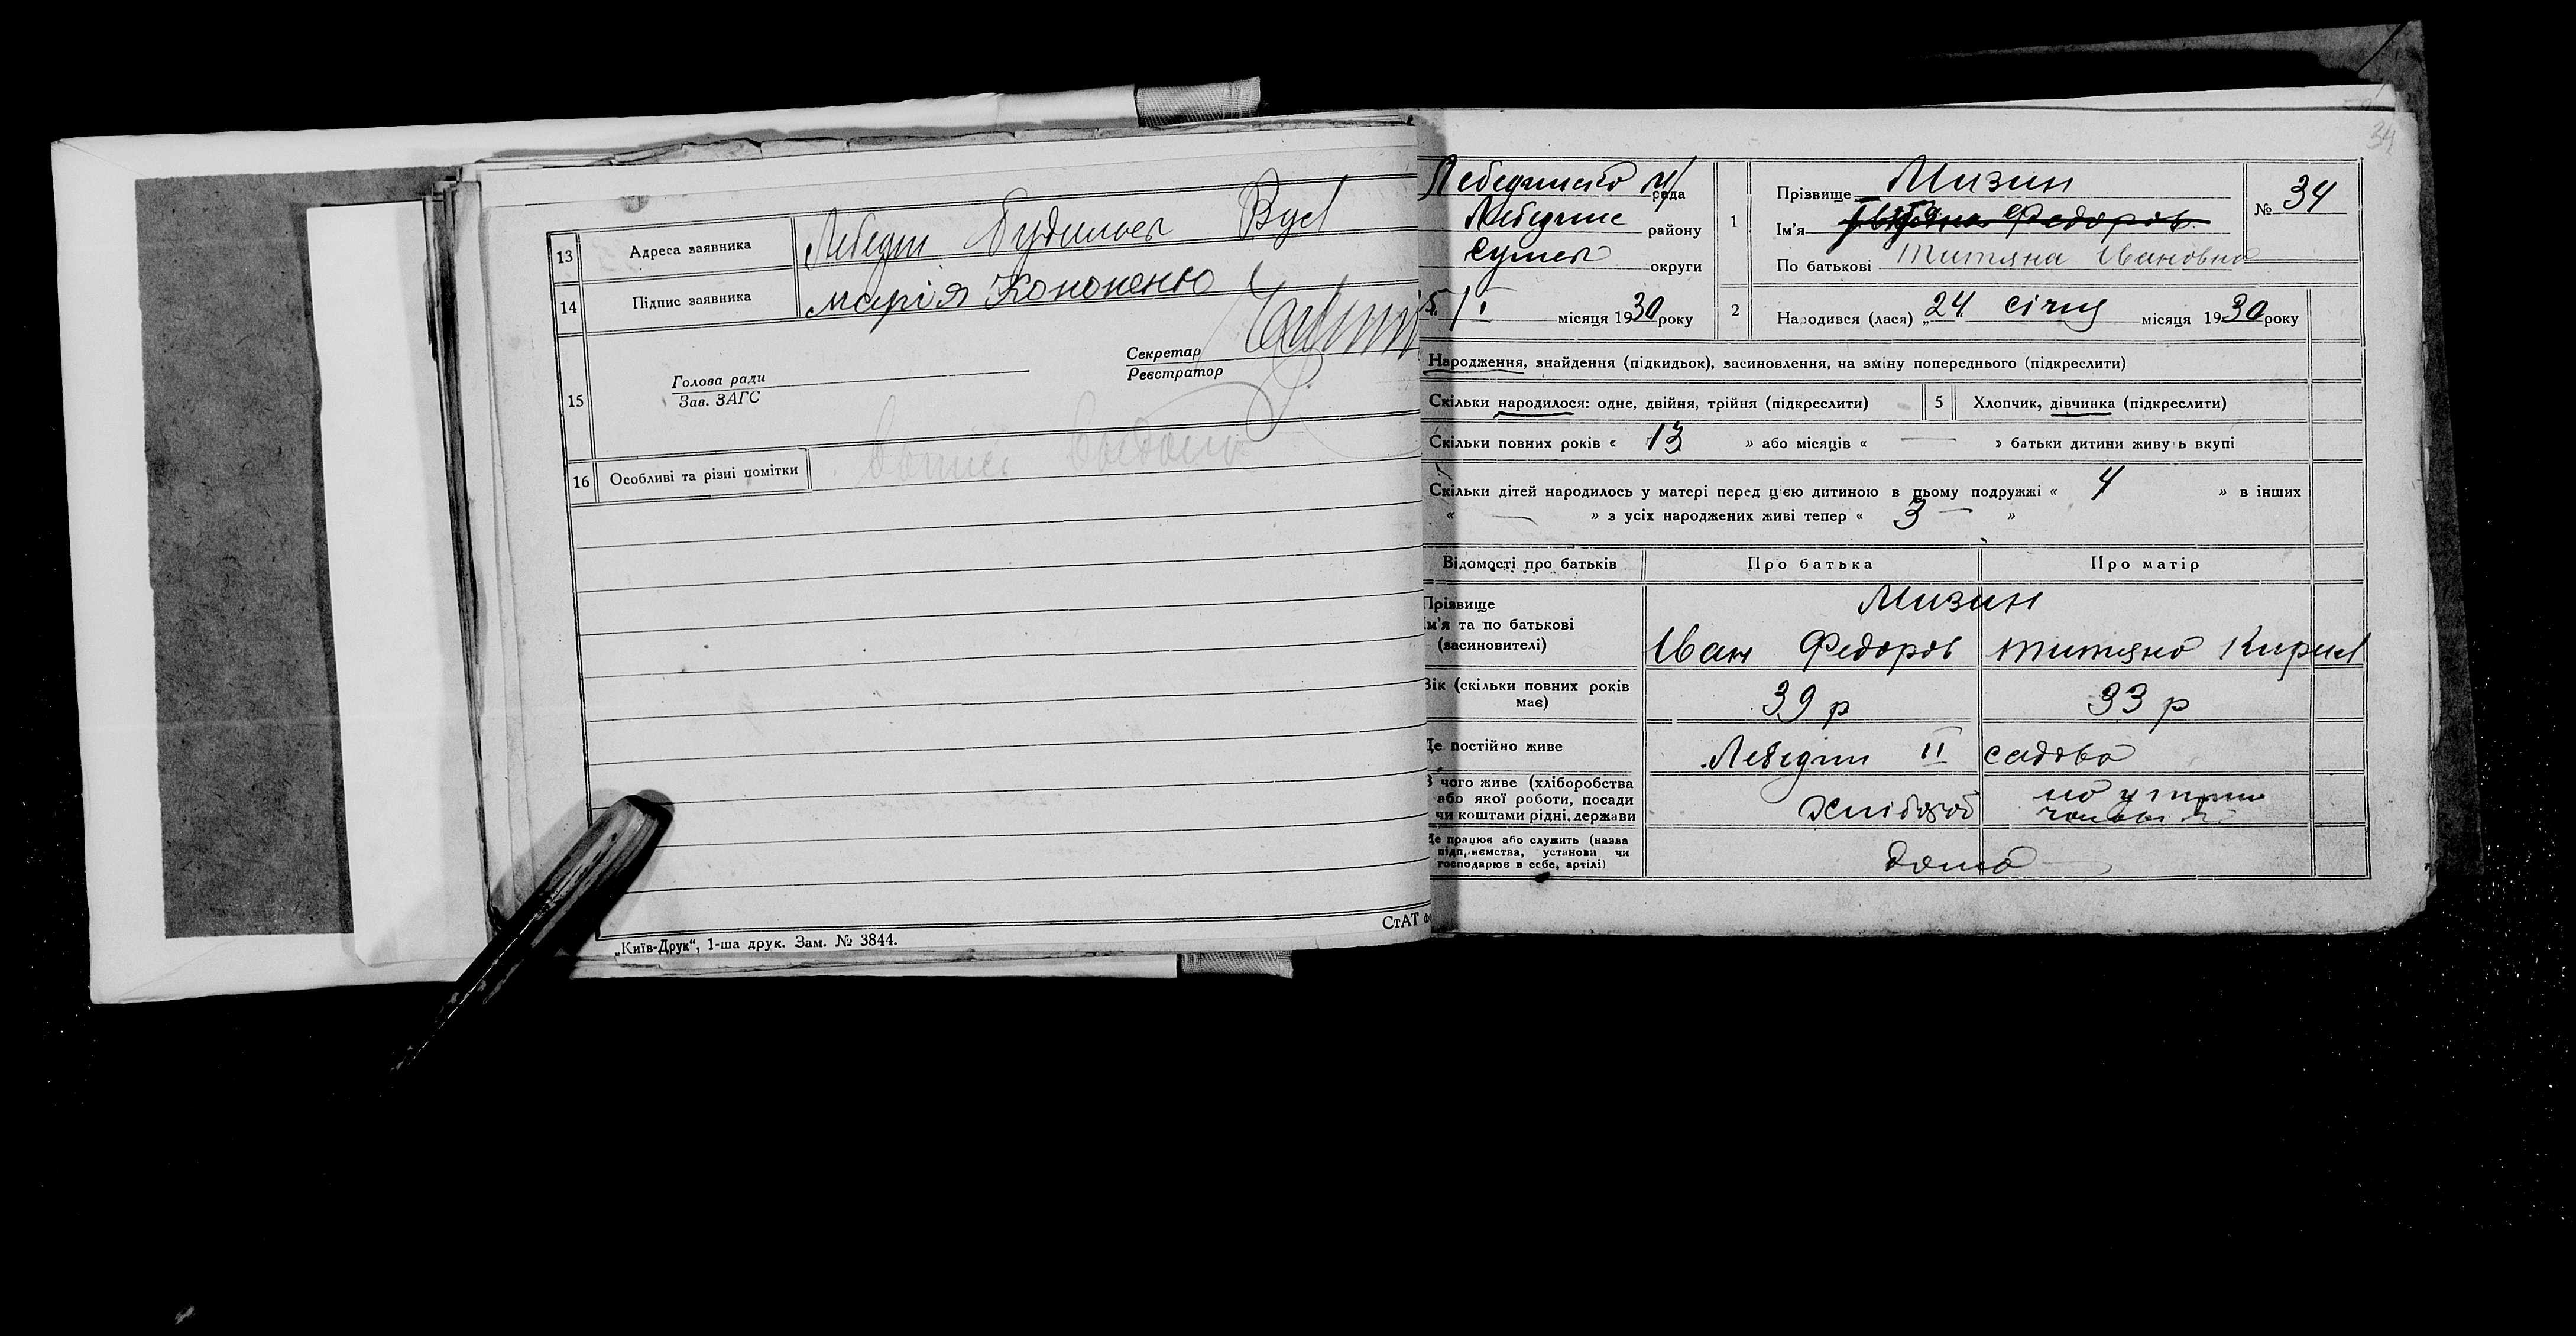 13 Адреса заявника Лебедин Будильск Вул
14 Підпис заявника марія Кононенко
15 Голова ради
Зав. ЗАГС
Секретар
Реєстратор
16 Особливі та різні помітки
„Київ-Друк“, 1-ша друк. Зам. № 3844.
СтАТ
34
рада
Лебедине району
Сумск округи
місяця 1930 року
1 Прізвище Мизин
№ 34
Ім'я Федоров
По батькові Титяна Ивановна
2 Народився (лася) „24 січня місяця 1930 року
Народження, знайдення (підкидьок), засиновлення, на зміну попереднього (підкреслити)
Скільки народилося: одне, двійня, трійня (підкреслити) 5 Хлопчик, дівчинка (підкреслити)
Скільки повних років « 13 » або місяців « — » батьки дитини живуть вкупі
Скільки дітей народилось у матері перед цією дитиною в цьому подружжі « 4 » в інших
« — » з усіх народжених живі тепер « 3 — »
Відомості про батьків Про батька Про матір
Прізвище Мизин
ім'я та по батькові
(засиновителі) Іван Федоров титяна Кирил
Вік (скільки повних років
має) 39 р 33 р
Де постійно живе Лебедин II садова
З чого живе (хліборобства
або якої роботи, посади
чи коштами рідні, держави хлібороб
Де працює або служить (назва
підприємства, установи чи
господарює в себе, артілі) дома